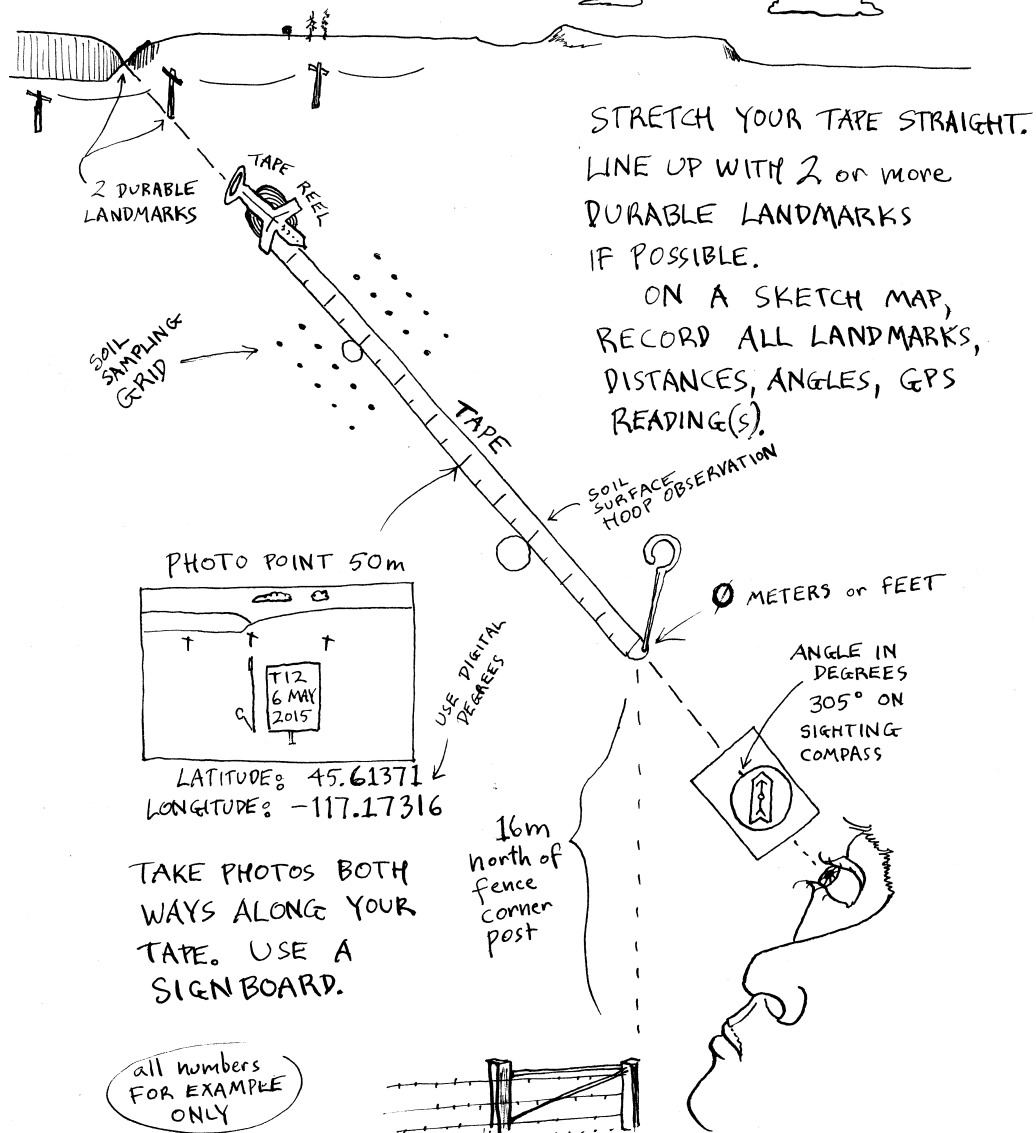 STRETCH YOUR TAPE STRAIGHT.
LINE UP WITH 2 or more
DURABLE LANDMARKS
IF POSSIBLE.
ON A SKETCH MAP,
RECORD ALL LANDMARKS,
DISTANCES, ANGLES, GPS
READING(S).
2 DURABLE
LANDMARKS
TAPE REEL
SOIL
SAMPLING
GRID
TAPE
SOIL
SURFACE
HOOP OBSERVATION
PHOTO POINT 50m
T12
6 MAY
2015
USE DIGITAL
DEGREES
LATITUDE: 45.61371
LONGITUDE: -117.17316
0 METERS or FEET
ANGLE IN
DEGREES
305° ON
SIGHTING
COMPASS
16m
north of
fence
corner
post
TAKE PHOTOS BOTH
WAYS ALONG YOUR
TAPE. USE A
SIGNBOARD.
all numbers
FOR EXAMPLE
ONLY